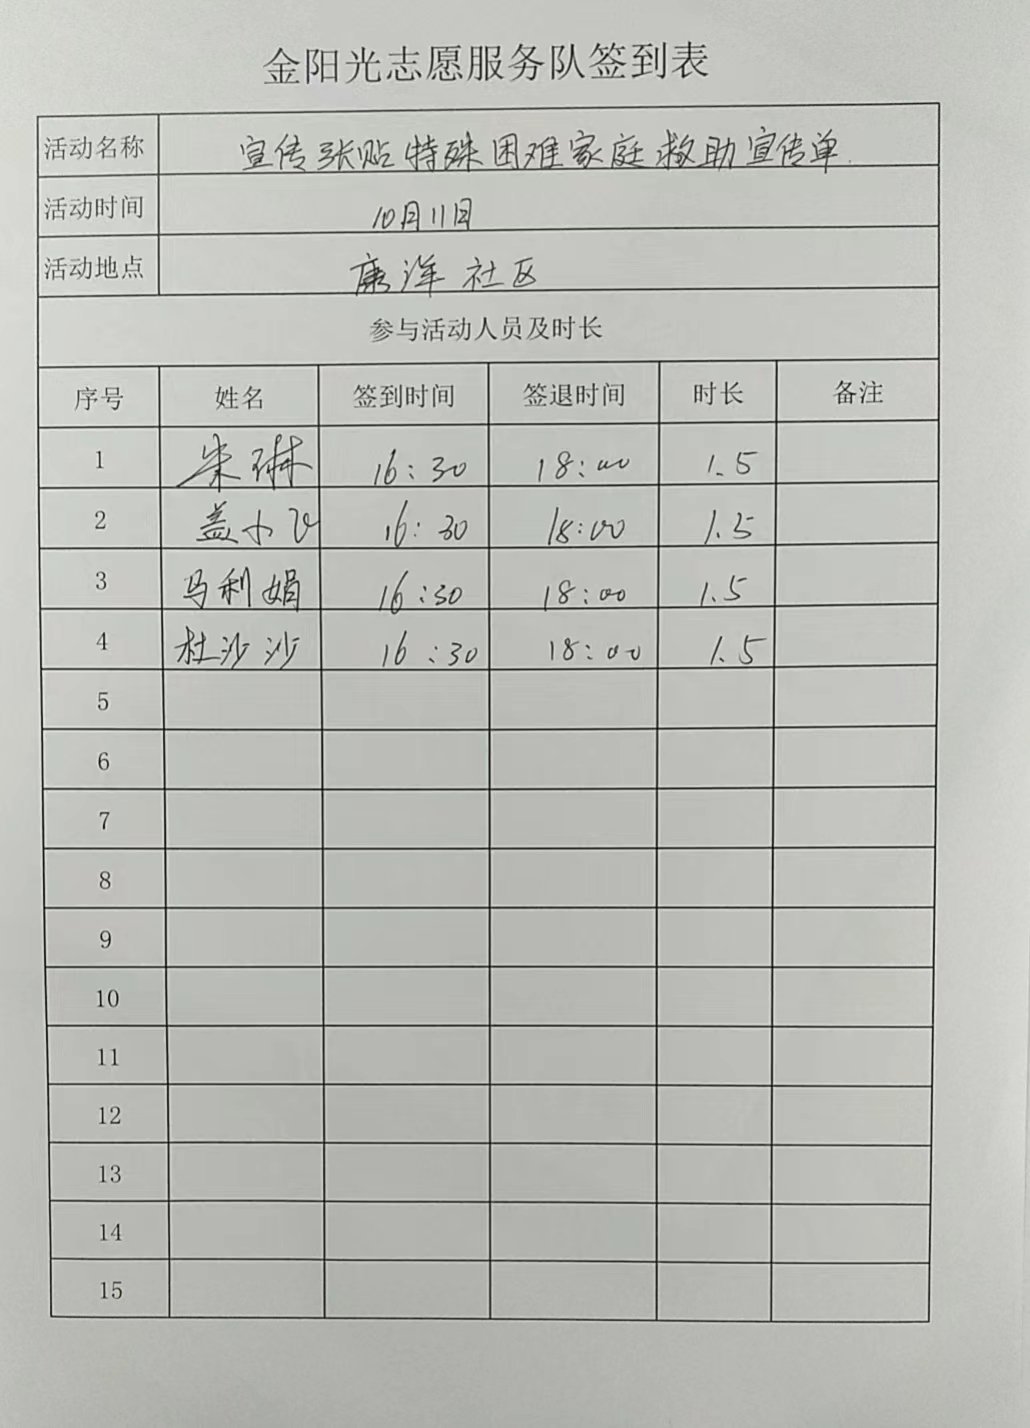 金阳光志愿服务队签到表
活动名称 宣传张贴特殊困难家庭救助宣传单
活动时间 10月11日
活动地点 康洋社区
参与活动人员及时长
序号 姓名 签到时间 签退时间 时长 备注
1 朱琳 16:30 18:00 1.5
2 盖小飞 16:30 18:00 1.5
3 马利娟 16:30 18:00 1.5
4 杜沙沙 16:30 18:00 1.5
5
6
7
8
9
10
11
12
13
14
15